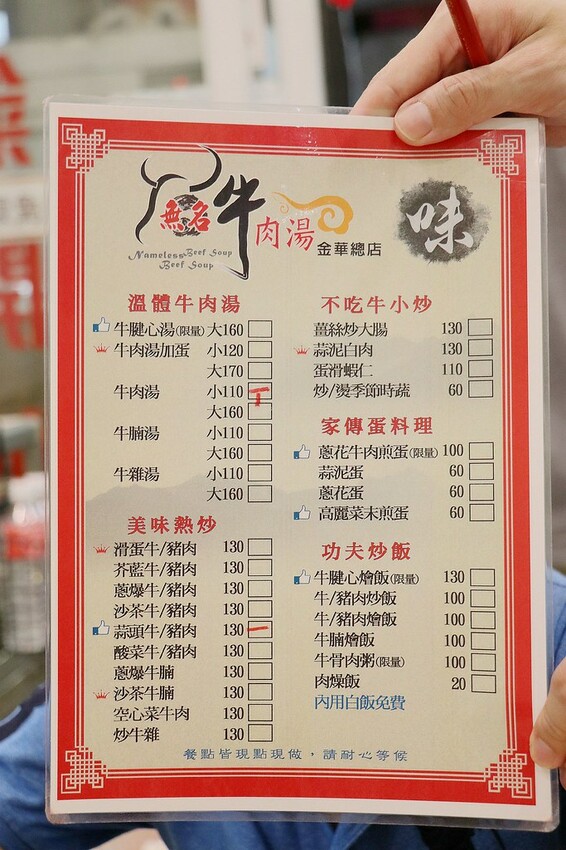 無名
牛
肉湯
金華總店
Nameless Beef Soup
Beef Soup
味
溫體牛肉湯
牛腱心湯(限量) 大160
牛肉湯加蛋 小120
大170
牛肉湯 小110
大160
牛腩湯 小110
大160
牛雜湯 小110
大160
美味熱炒
滑蛋牛/豬肉 130
芥藍牛/豬肉 130
蔥爆牛/豬肉 130
沙茶牛/豬肉 130
蒜頭牛/豬肉 130 一
酸菜牛/豬肉 130
蔥爆牛腩 130
沙茶牛腩 130
空心菜牛肉 130
炒牛雜 130
不吃牛小炒
薑絲炒大腸 130
蒜泥白肉 130
蛋滑蝦仁 110
炒/燙季節時蔬 60
家傳蛋料理
蔥花牛肉煎蛋(限量) 100
蒜泥蛋 60
蔥花蛋 60
高麗菜末煎蛋 60
功夫炒飯
牛腱心燴飯(限量) 130
牛/豬肉炒飯 100
牛/豬肉燴飯 100
牛腩燴飯 100
牛骨肉粥(限量) 100
肉燥飯 20
內用白飯免費
餐點皆現點現做，請耐心等候